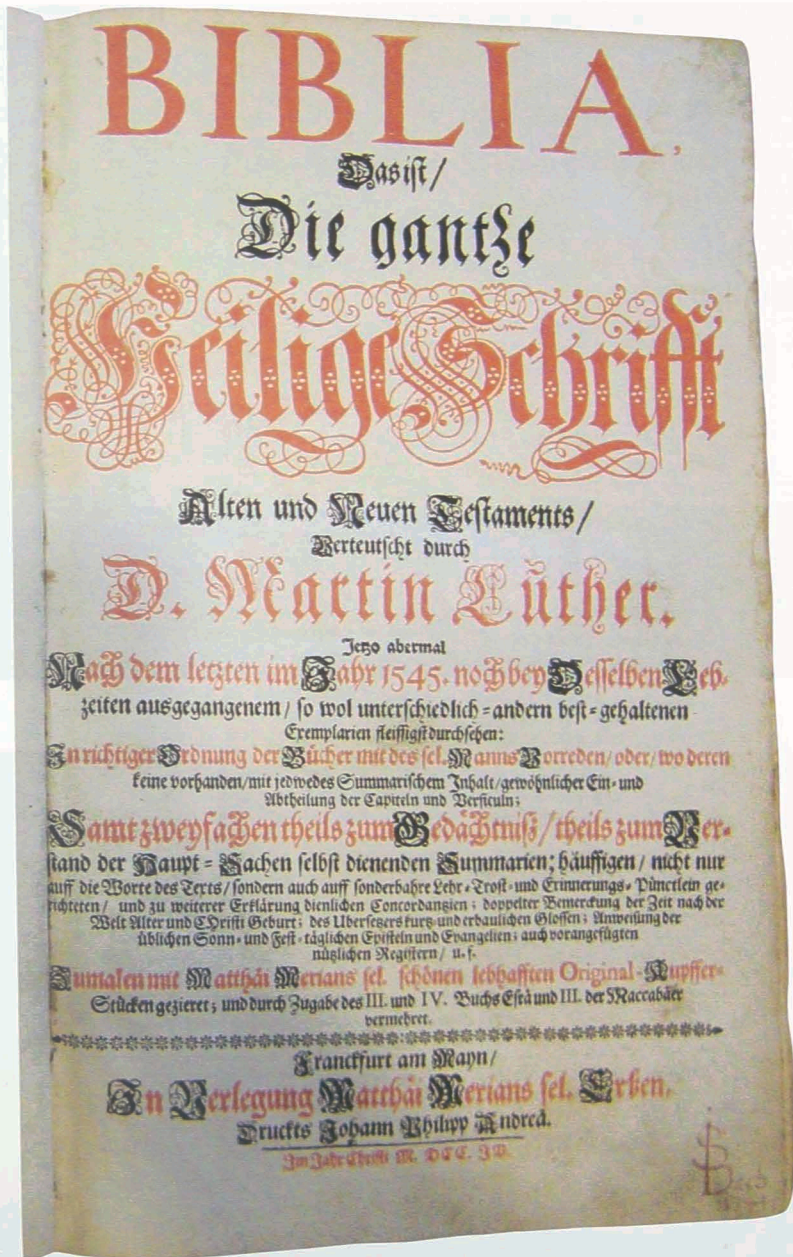 BIBLIA,
Das ist /
Die gantze
Heilige Schrifft
Alten und Neuen Testaments /
Verteutscht durch
D. Martin Luther.
Jetzo abermal
Nach dem letzten im Jahr 1545. noch bey Desselben Leb-
zeiten ausgegangenem / so wol unterschiedlich-andern best-gehaltenen
Exemplarien fleissigst durchsehen:
In richtiger Ordnung der Bücher mit des sel. Manns Vorreden / oder / wo deren
keine vorhanden / mit jedwedes Summarischem Inhalt / gewöhnlicher Ein- und
Abtheilung der Capiteln und Versiculn;
Samt zweyfachen theils zum Gedächtniß / theils zum Ver-
stand der Haupt-Sachen selbst dienenden Summarien; häuffigen / nicht nur
auff die Worte des Texts / sondern auch auff sonderbahre Lehr-Trost- und Erinnerungs-Pünctlein ge-
richteten / und zu weiterer Erklärung dienlichen Concordantzien; doppelter Bemerckung der Zeit nach der
Welt Alter und Christi Geburt; des Ubersetzers kurtz- und erbaulichen Glossen; Anweisung der
üblichen Sonn- und Fest-täglichen Episteln und Evangelien; auch vorangefügten
nützlichen Registern / u. s.
Zumalen mit Matthäi Merians sel. schönen lebhafften Original-Kupffer-
Stücken gezieret; und durch Zugabe des III. und IV. Buchs Esrä und III. der Maccabäer
vermehret.
Franckfurt am Mayn /
In Verlegung Matthäi Merians sel. Erben,
Druckts Johann Philipp Andreä.
Im Jahr Christi M. DCC. IV.